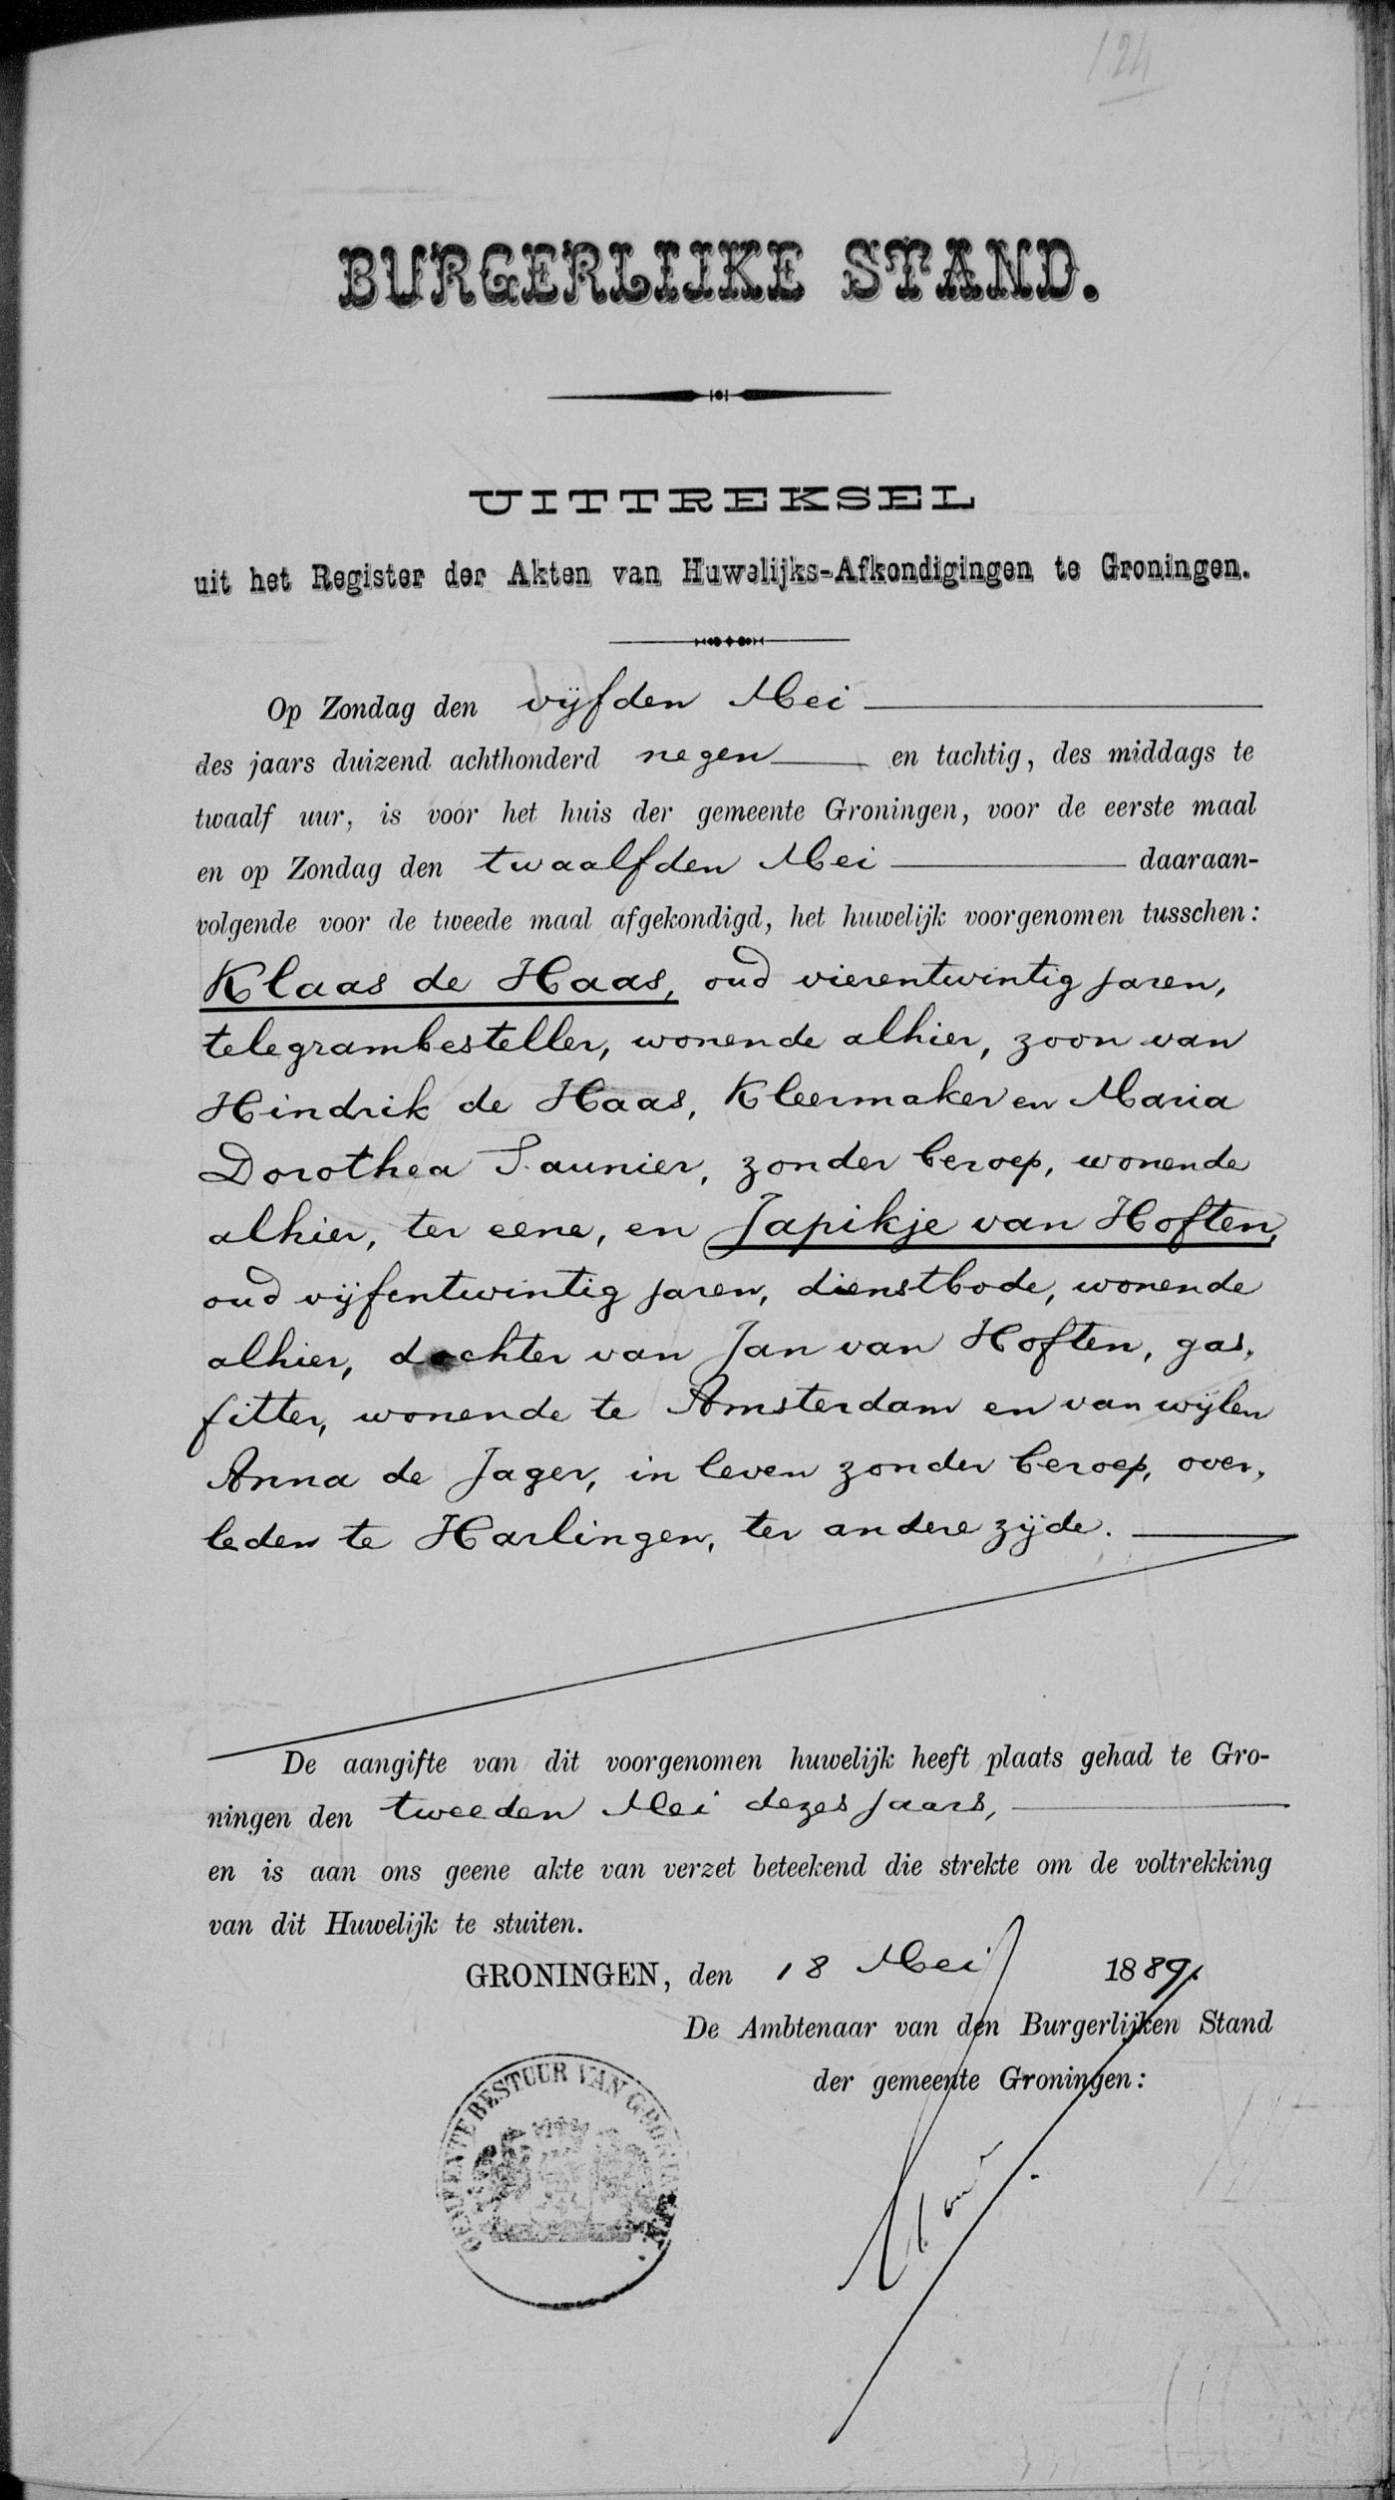 124
BURGERLIJKE STAND.
UITTREKSEL
uit het Register der Akten van Huwelijks-Afkondigingen te Groningen.
Op Zondag den vijfden Mei
des jaars duizend achthonderd negen en tachtig, des middags te
twaalf uur, is voor het huis der gemeente Groningen, voor de eerste maal
en op Zondag den twaalfden Mei daaraan-
volgende voor de tweede maal afgekondigd, het huwelijk voorgenomen tusschen:
Klaas de Haas, oud vierentwintig jaren,
telegrambesteller, wonende alhier, zoon van
Hindrik de Haas, Kleermaker en Maria
Dorothea Saunier, zonder beroep, wonende
alhier, ter eene, en Japikje van Hoften,
oud vijfentwintig jaren, dienstbode, wonende
alhier, dochter van Jan van Hoften, gas,
fitter, wonende te Amsterdam en van wijlen
Anna de Jager, in leven zonder beroep, over,
leden te Harlingen, ter andere zijde.
De aangifte van dit voorgenomen huwelijk heeft plaats gehad te Gro-
ningen den tweeden Mei dezes jaars,
en is aan ons geene akte van verzet beteekend die strekte om de voltrekking
van dit Huwelijk te stuiten.
GRONINGEN, den 18 Mei 1889.
De Ambtenaar van den Burgerlijken Stand
der gemeente Groningen:
GEMEENTE BESTUUR VAN GRONINGEN.